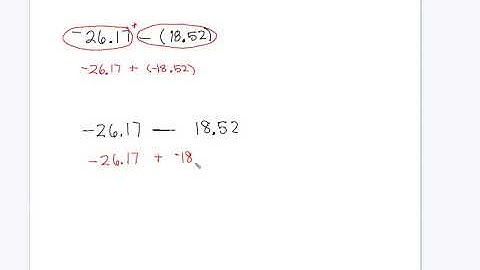 -26.17 + - (18.52)
-26.17 + (-18.52)
-26.17 — 18.52
-26.17 + -18